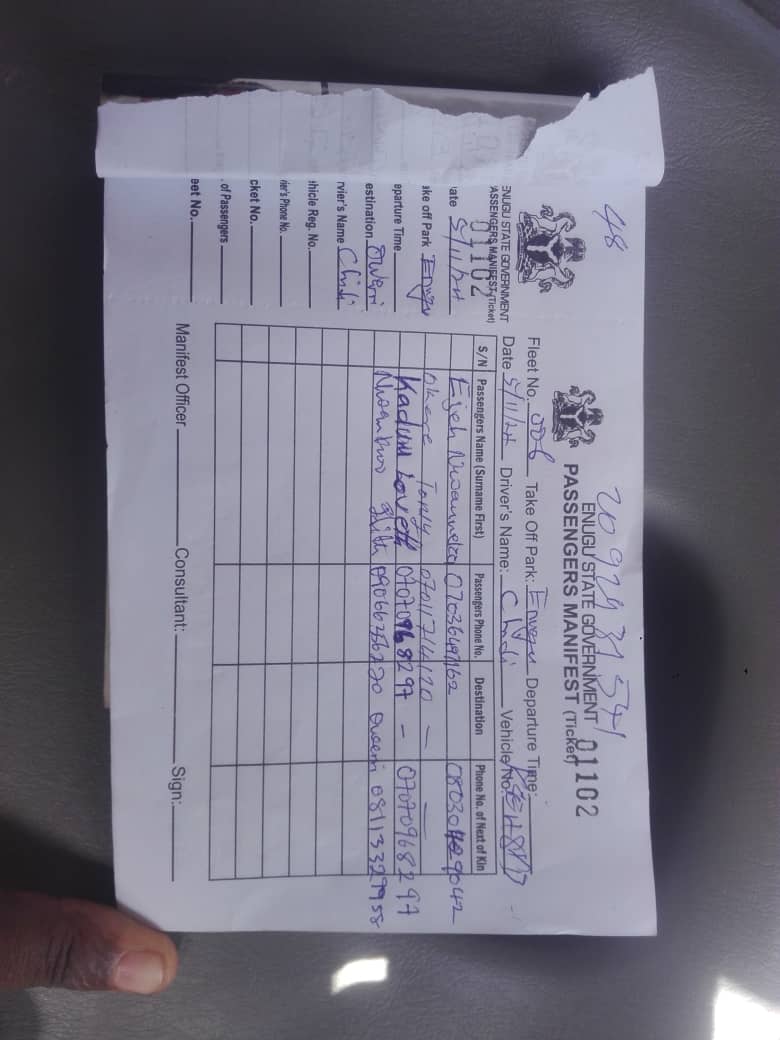 48
ENUGU STATE GOVERNMENT
PASSENGERS MANIFEST (Ticket)
01102
ate 5/11/24
ake off Park Enugu
eparture Time
estination Owerri
rvier's Name Chidi
hicle Reg. No.
rier's Phone No.
cket No.
. of Passengers
eet No.
2092431541
ENUGU STATE GOVERNMENT
PASSENGERS MANIFEST (Ticket) 01102
Fleet No: 006 Take Off Park: Enugu Departure Time:
Date 5/11/24 Driver's Name: Chidi Vehicle No:
S/N Passengers Name (Surname First) Passengers Phone No. Destination Phone No. of Next of Kin
Ejeh Nwanneka 07036491162 08030429042
Okere 07011714120 -
Loveth 07070968297 - 07070968297
09066256220 Owerri 08113329958
Manifest Officer Consultant: Sign: